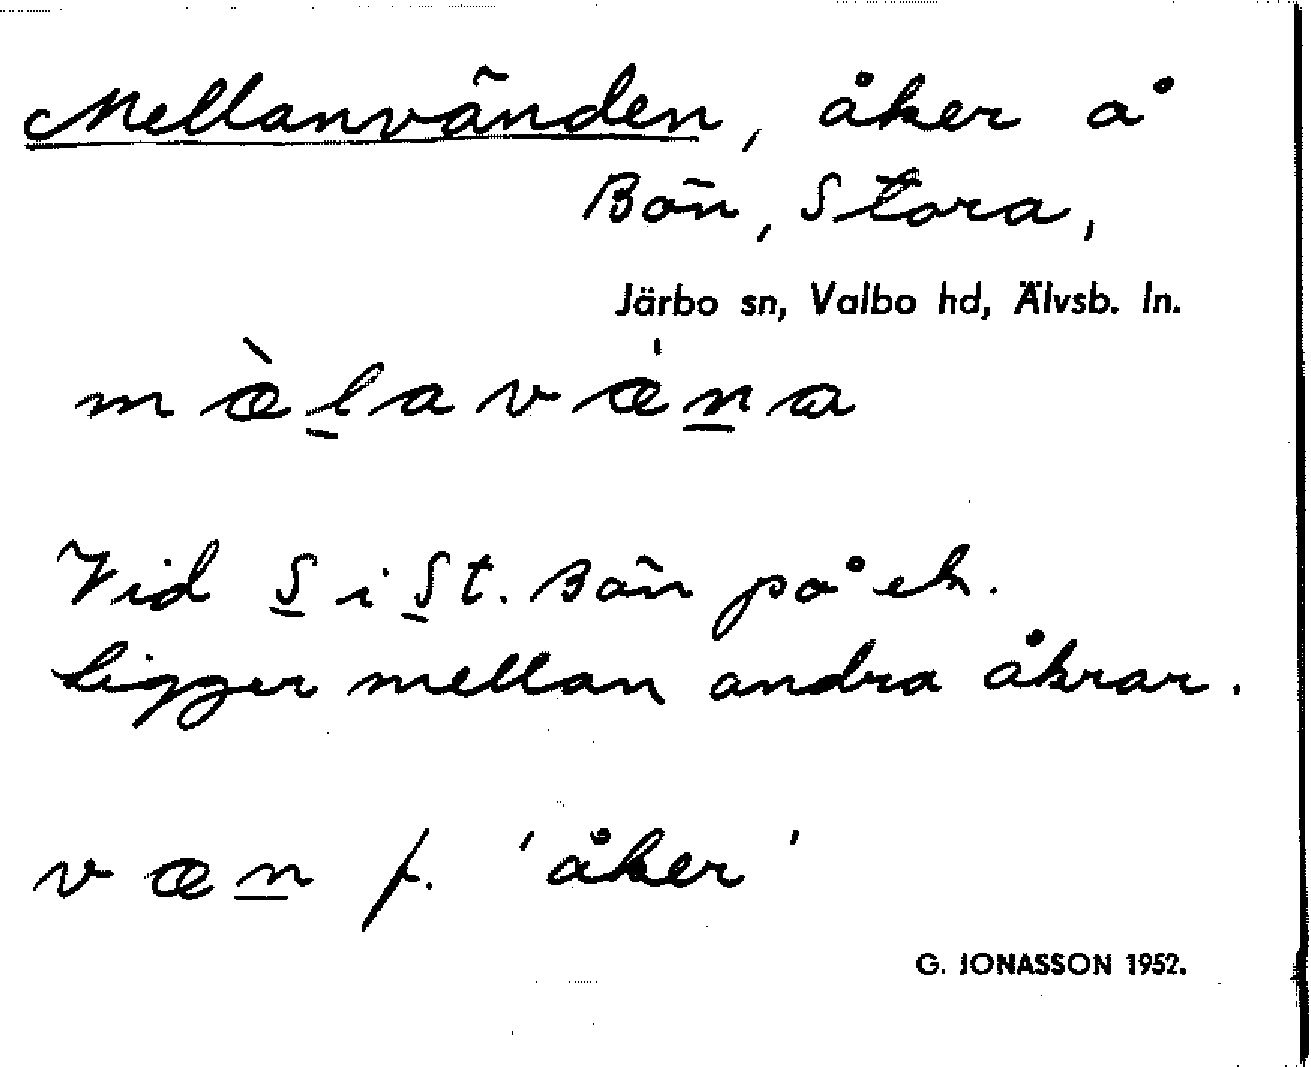 Mellanvänden, åker å
Bön, Stora,
Järbo sn, Valbo hd, Älvsb. ln.
mæ̀l̲avǽn̲a
Vid S̲ i S̲t. Bön på ek.
Ligger mellan andra åkrar.
væn̲ f. 'åker'
G. JONASSON 1952.